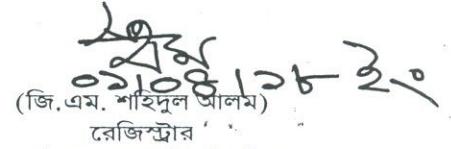 ০২|০৪|১৮ ইং
(জি.এম. শহিদুল আলম)
রেজিস্ট্রার